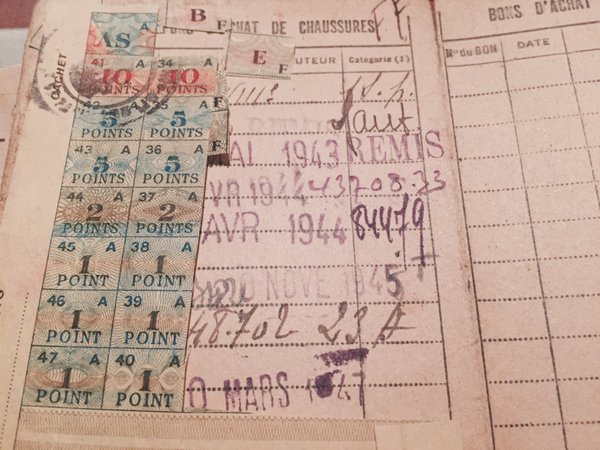 B F
D'ACHAT DE CHAUSSURES
BONS D'ACHAT
E F
AS
CACHET
UTEUR Catégorie (1)
Nº du BON DATE
41 A 34
10 10
POINTS POINTS
42 A 35 F
5 5
POINTS POINTS
Saut
43 A 36 F
5 5
POINTS POINTS
AI 1943 REMIS
44 A 37 A
2 2
POINTS POINTS
VR 1944 43708.33
AVR 1944 84479
45 A 38 A
1 1
POINT POINT
NOVE 1945
46 A 39 A
1 1
POINT POINT
48.702 23 A
47 A 40 A
1 1
POINT POINT
0 MARS 1947